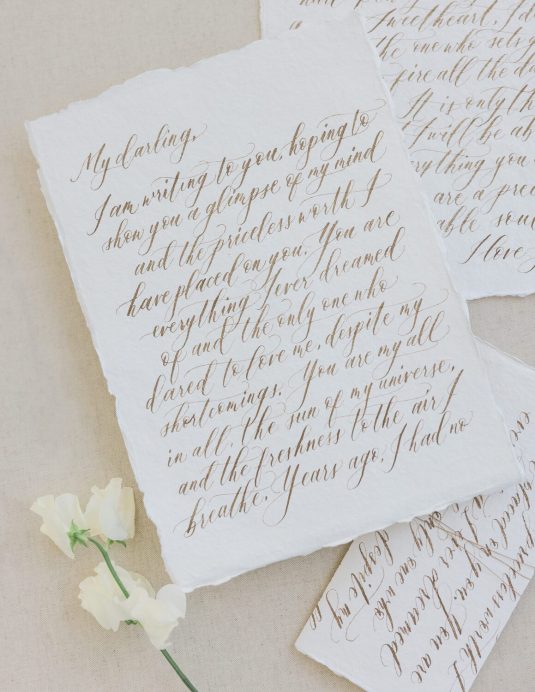 My darling,
I am writing to you, hoping to
show you a glimpse of my mind
and the priceless worth I
have placed on you. You are
everything I ever dreamed
of and the only one who
dared to love me, despite my
shortcomings. You are my all
in all, the sun of my universe,
and the freshness to the air I
breathe. Years ago, I had no
Sweetheart, I d
the one who sets
fire all the da
It is only th
I will be ab
rything you
are a prec
able soul
I love
priceless worth I
placed on you. You are
I ever dreamed
only one who
despite my